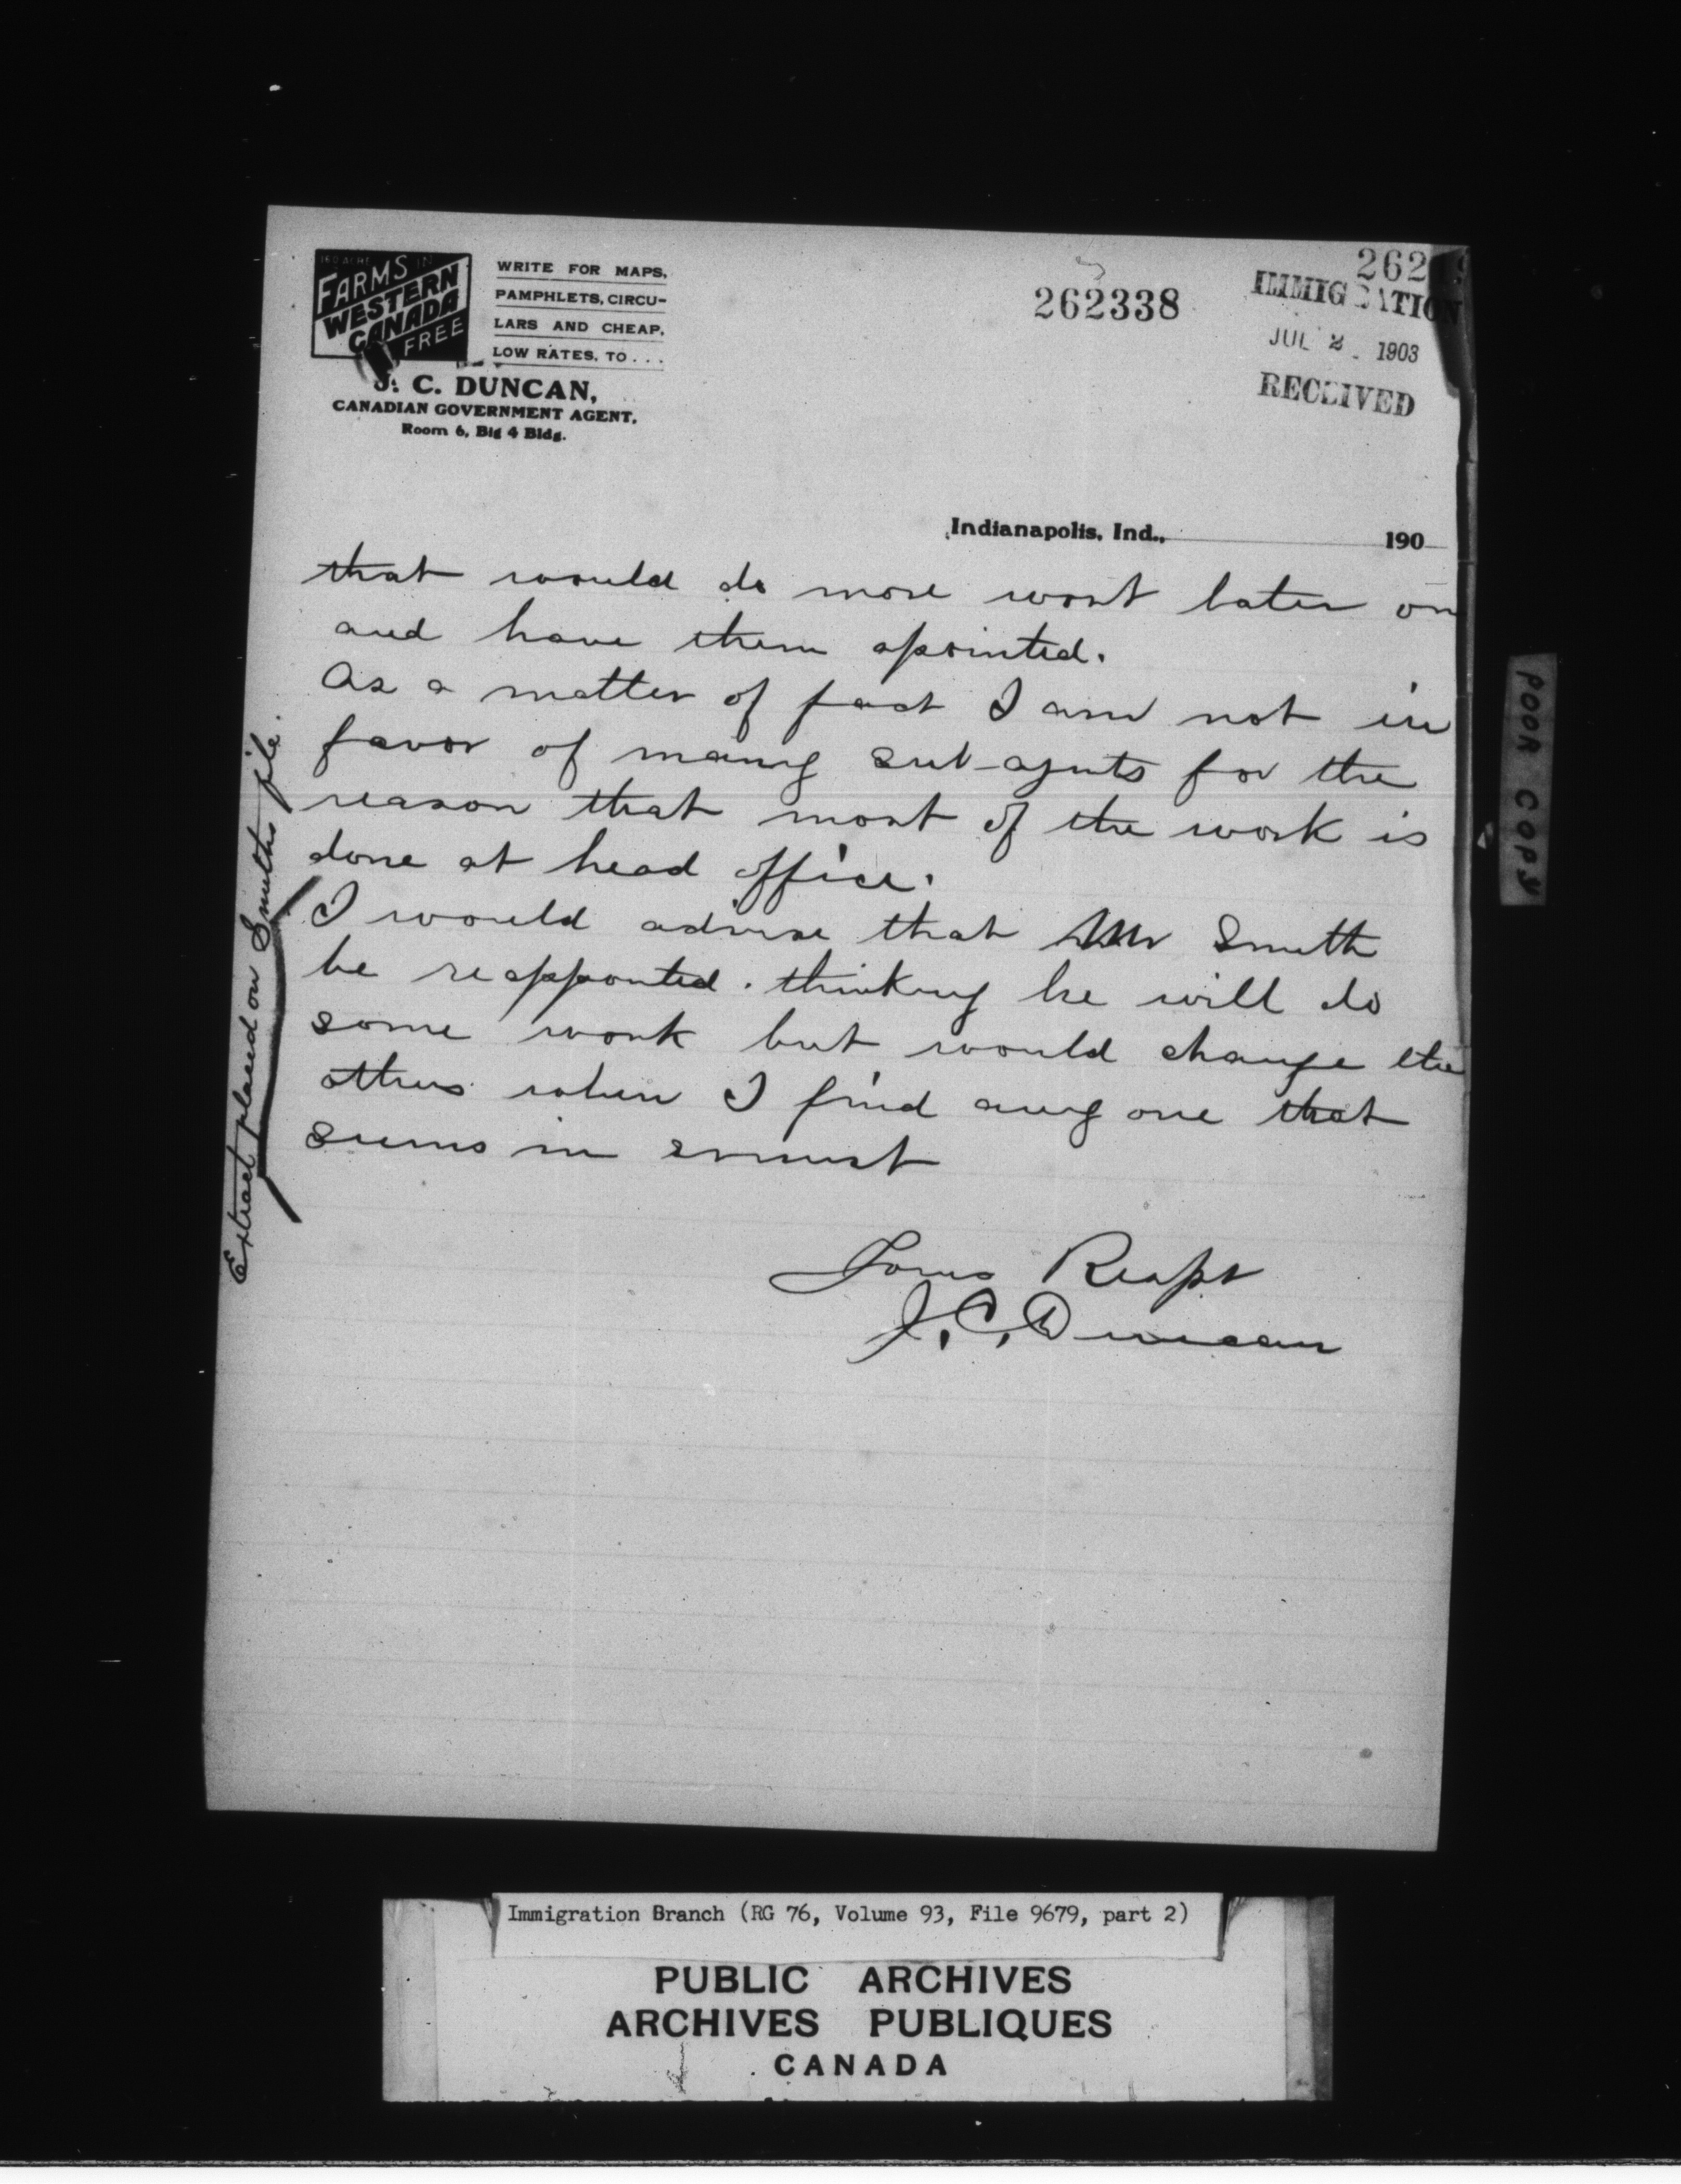 160 ACRE
FARMS IN
WESTERN
CANADA
FREE
WRITE FOR MAPS,
PAMPHLETS, CIRCU-
LARS AND CHEAP,
LOW RATES, TO . . .
J. C. DUNCAN,
CANADIAN GOVERNMENT AGENT,
Room 6, Big 4 Bldg.
262338
262
IMMIGRATION
JUL 2 1903
RECEIVED
Indianapolis, Ind., 190
that would do more work later on
and have them apointed.
As a matter of fact I am not in
favor of many sub-agents for the
reason that most of the work is
done at head office.
I would advise that Mr Smith
be reappointed. thinking he will do
some work but would change the
others when I find any one that
seems in ernest
Yours Respt
J. C. Duncan
Extract placed on Smiths file.
POOR COPY
Immigration Branch (RG 76, Volume 93, File 9679, part 2)
PUBLIC ARCHIVES
ARCHIVES PUBLIQUES
CANADA